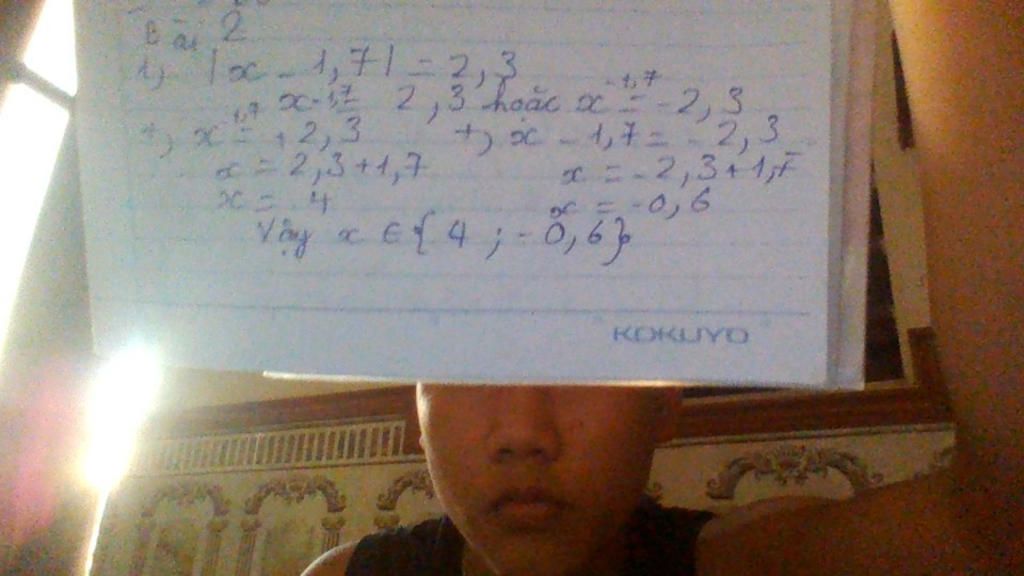 Bài 2
1, |x - 1,7| = 2,3
x - 1,7 = 2,3 hoặc x - 1,7 = -2,3
+, x - 1,7 = +2,3 +, x - 1,7 = -2,3
x = 2,3+1,7 x = -2,3+1,7
x = 4 x = -0,6
Vậy x ∈ { 4 ; -0,6}
KOKUYO